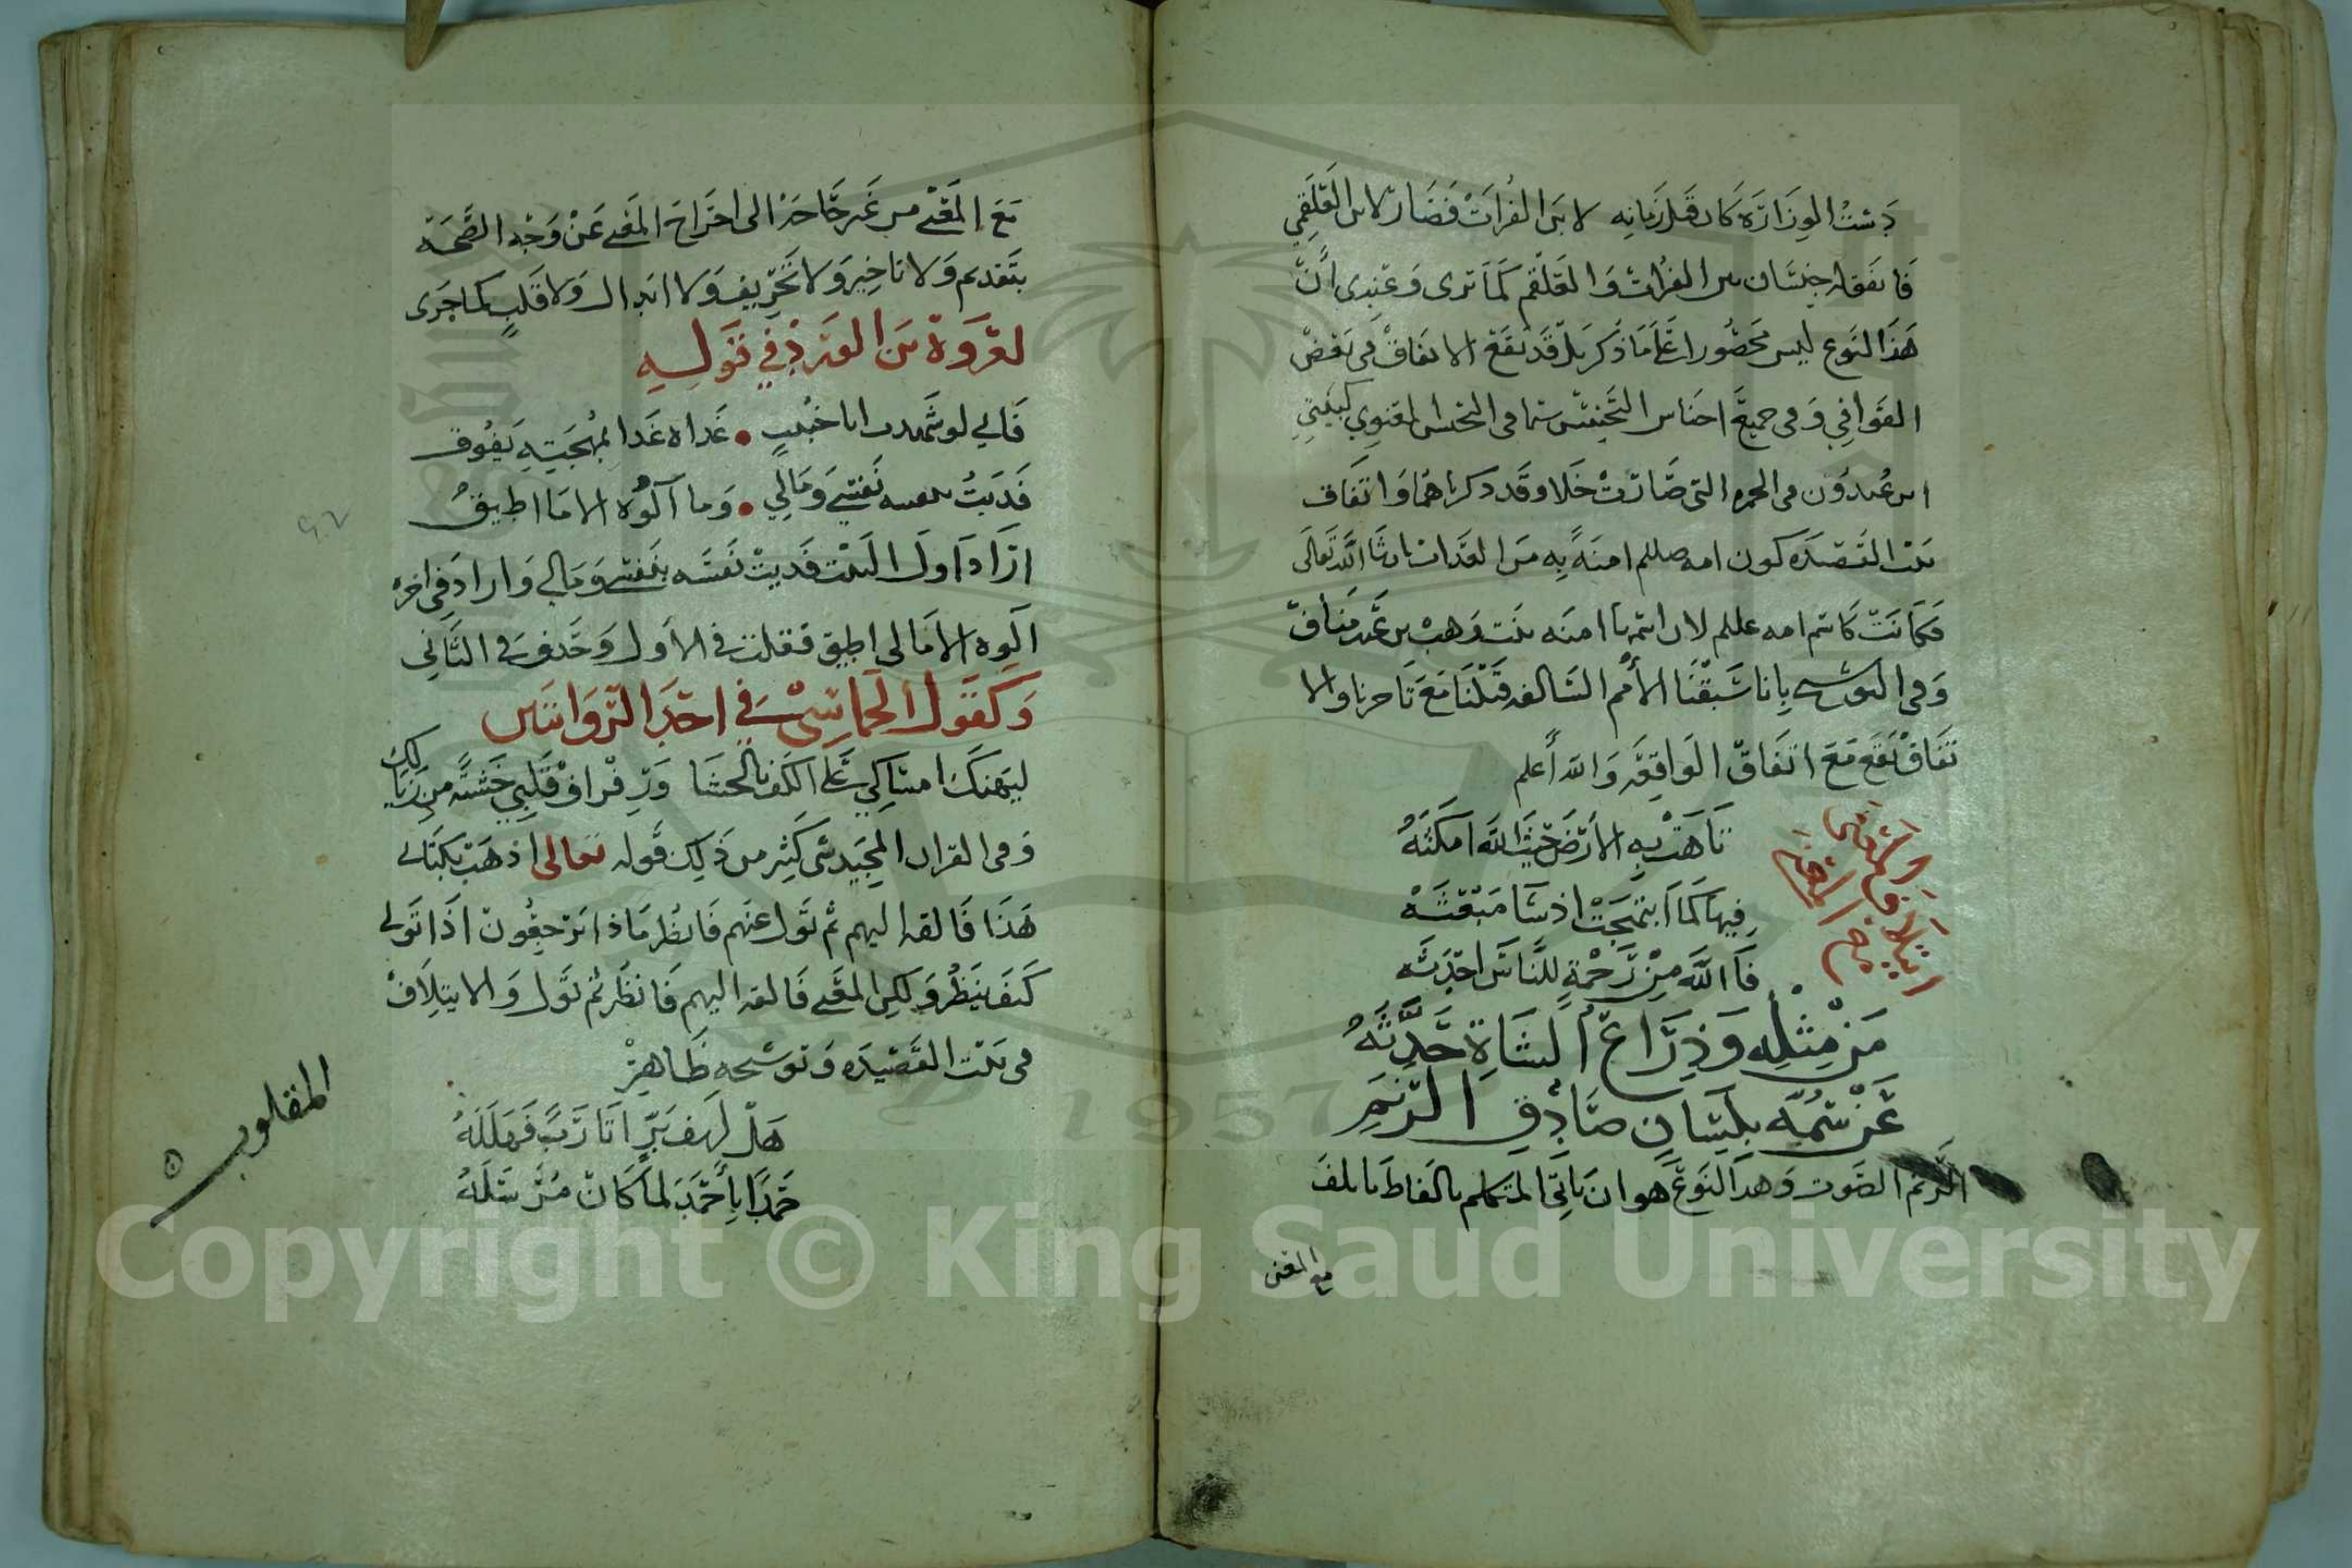 دست الوزارة كان قبل زمانه لابن الفرات فصار لابن العلقمي
فاتفق له جنسان من الفرات والعلقم كما ترى وعندي ان
هذا النوع ليس محصورا على ما ذكر بل قد يقع الاتفاق في بعض
القوافي وفي جميع اجناس التجنيس سيما في التجنيس المعنوي كبيتي
ابن عبدون في الخمرة التي صارت خلا وقد ذكرناهما واتفاق
بيت القصيدة كون امه صللم امنة به من العذاب ان شا الله تعالى
فكانت كاسم امه عللم لان اسمها امنه بنت وهب بن عبد مناف
وفي التوشيح بانا سبقنا الأمم السالفه قبلنا مع تاخرنا والا
تفاق يقع مع اتفاق الواقعة والله أعلم
ايتلاف اللفظ
مع المعنى
تاهت به الأرض حيث الله امكنه
فيها كما ابتهجت اذ شا مبعثه
فا الله من رحمة للناس احدثه
من مثله وذراع الشاة حدثه
عن سمه بلسان صادق الرنم
الرنم الصوت وهذا النوع هو ان ياتي المتكلم بالفاظ تاتلف
مع المعنى
مع المعنى من غير حاجة الى اخراج المعنى عن وجه الصحة
بتقديم ولا تاخير ولا تحريف ولا ابدال ولا قلب كما جرى
لعروة بن الورد في قوله
فاني لو شهدت ابا خبيب • غداه غدا بمهجته يفوق
فديت بنفسه نفسي ومالي • وما آلوه الا ما اطيق
اراد اول البيت فديت نفسه بنفسي ومالي واراد في اخره
آلوه الا مالي اطيق فقلب في الاول وحذف في الثاني
وكقول الحماسي في احد الروايتين
ليهنك امساكي على الكف بالحشا ورفراق قلبي خشية من زيالك
وفي القران المجيد شي كثير من ذلك قوله تعالى اذهب بكتابي
هذا فالقه اليهم ثم تول عنهم فانظر ماذا يرجعون اذا تولى
كيف ينظر ولكن المعنى فالقه اليهم فانظر ثم تول والايتلاف
في بيت القصيده وتوشيحه ظاهر
المقلوب
هل لهف بر اتا رب فهلله
حمدا باحمد لما كان مرسله